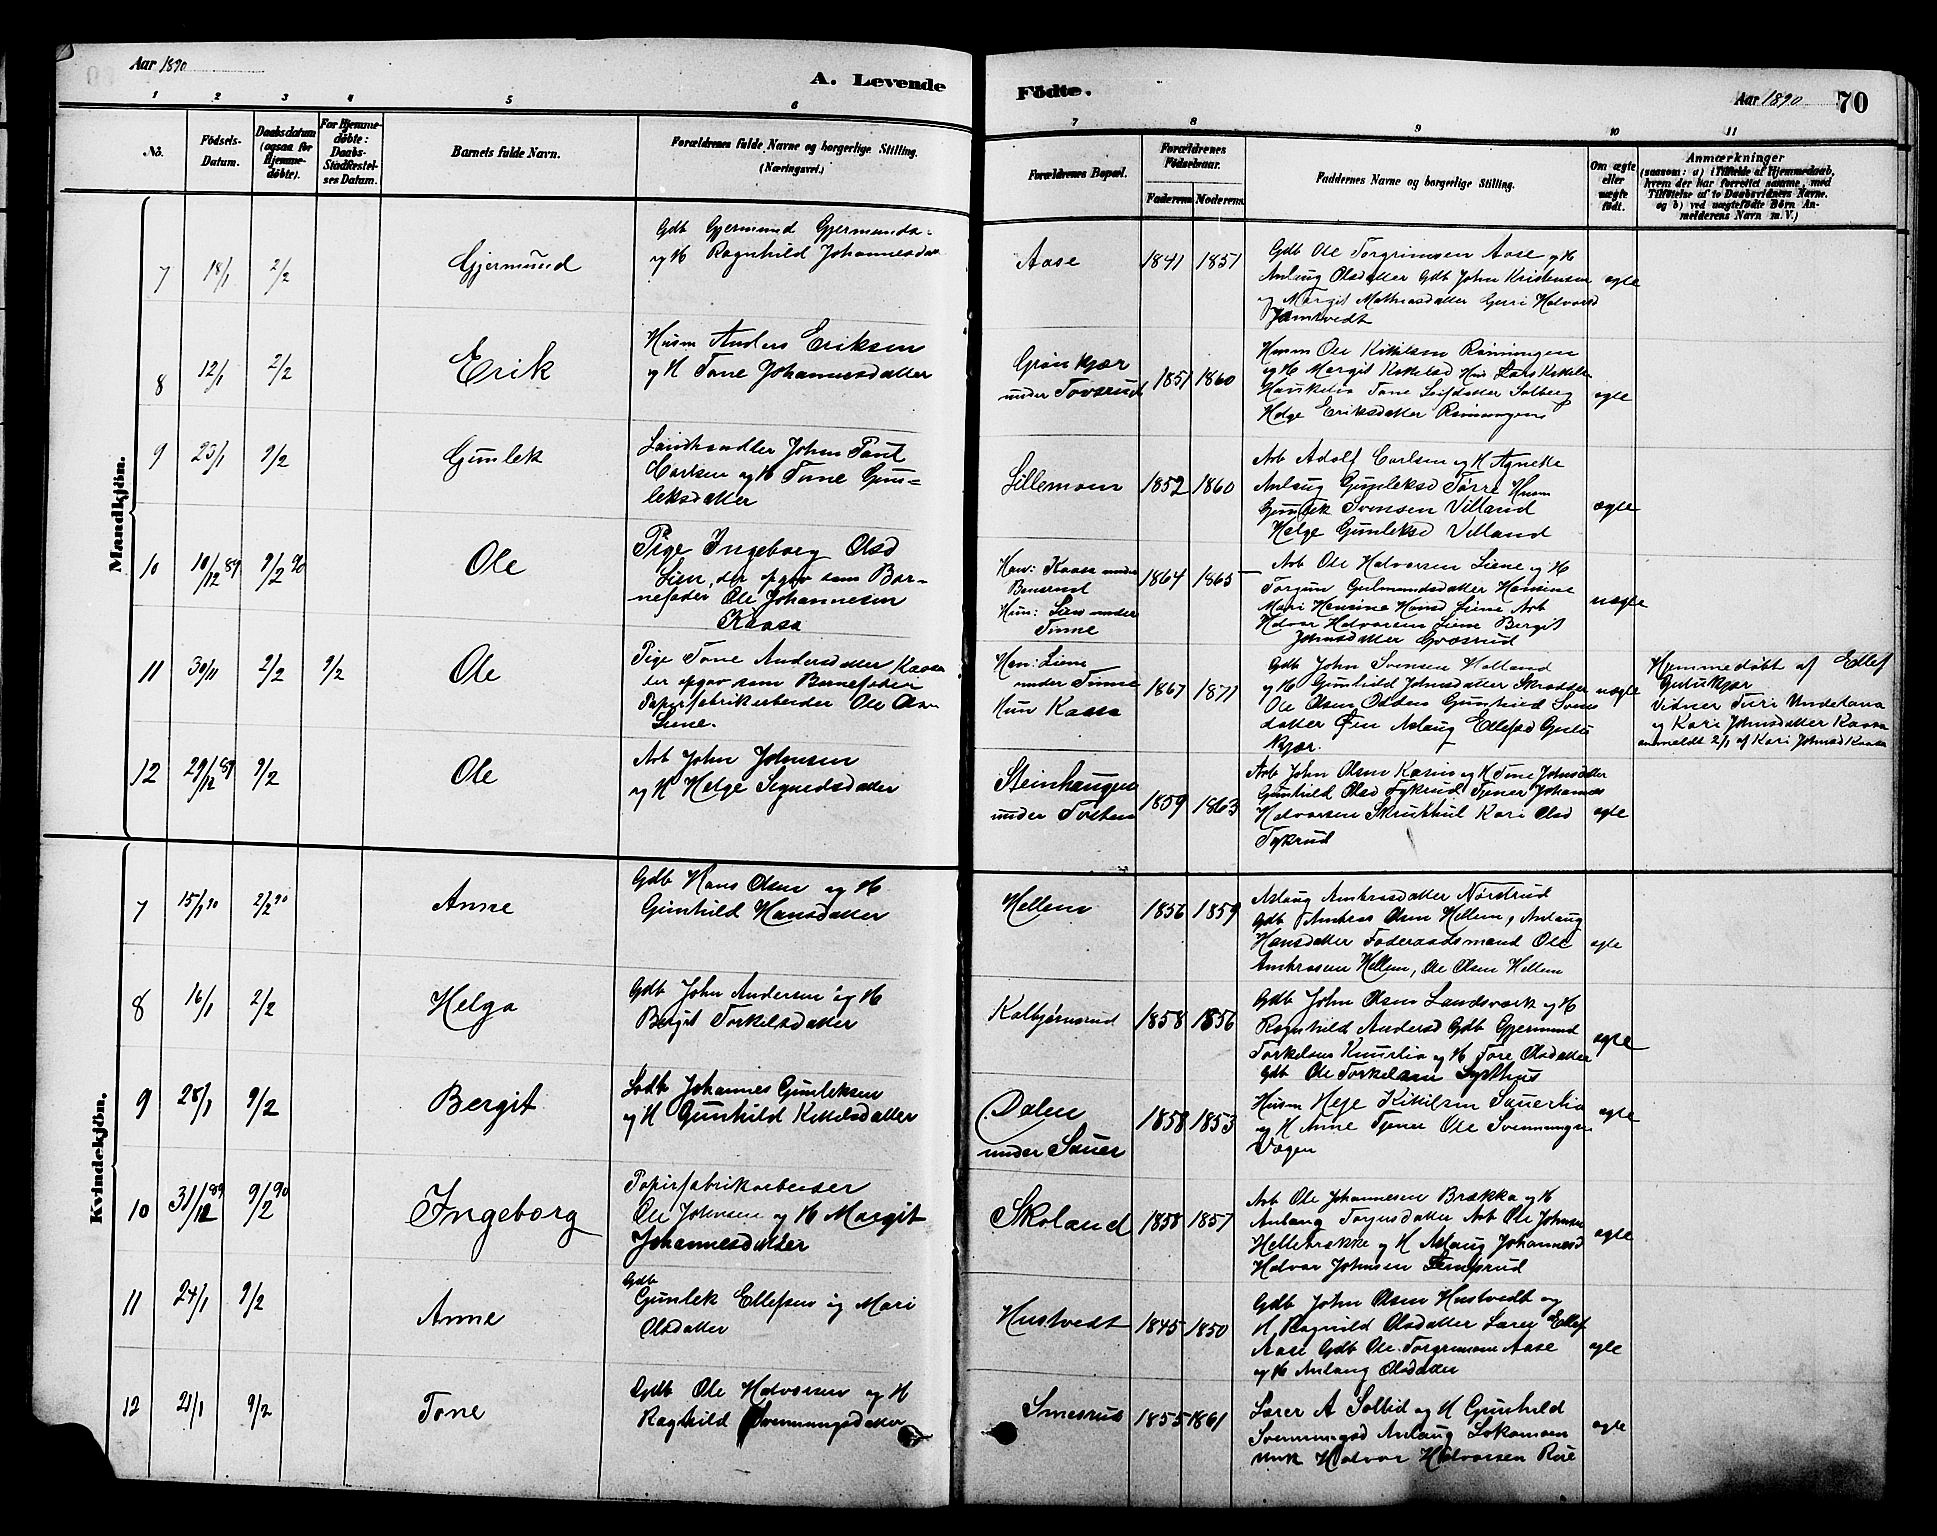 Aar 1890
A. Levende Födte.
Aar 1890
70
1 2 3 4 5 6 7 8 9 10 11
No.
Födsels-
Datum.
Daabsdatum
(ogsaa for
Hjemme-
døbte).
For Hjemme-
døbte:
Daabs-
Stadfæstel-
ses Datum.
Barnets fulde Navn.
Forældrenes fulde Navne og borgerlige Stilling.
(Næringsvei.)
Forældrenes Bopæl.
Forældrenes
Födselsaar.
Faderens Moderens
Faddernes Navne og borgerlige Stilling.
Om ægte
eller
uægte
født.
Anmærkninger
(saasom: a) i Tilfælde af Hjemmedaab,
hvem der har forrettet samme, med
Tilføielse af to Daabsvidners Navne.
og b) ved uægtefødte Børn An-
melderens Navn m. V.)
Mandkjön.
7 18/1 2/2 Gjermund
Gdb Gjermund Gjermunds.
og H Ragnhild Johannesdat
Aase 1841 1851
Gdb Ole Torgrimsen Aase og H
Anlaug Olsdatter Gdb John Kristensen
og Margit Mathiasdatter Halvorsd
ægte
8 12/1 2/2 Erik
Husm Anders Eriksen
og H Tone Johannesdatter
Grønkjær
under Tovsrud
1851 1860
Husm Ole Kittilsen Rønningen
og H Margit
Tone Leifsdatter Solberg
Helge Eriksdatter Rønningen
ægte
9 25/1 9/2 Gunlek
Landhandler John Paul
Carlsen og H Tone Gun-
leksdatter
Lillemoen 1852 1860
Arb Adolf Carlsen og H Agneke
Anlaug Gunleksd Tørre Husm
Gunlek Svensen Villand
Helge Gunleksd Villand
ægte
10 10/12 89 9/2 90 Ole
Pige Ingeborg Olsd
Lien, der opgav som Bar-
nefader Ole Johannesen
Kaasa
Han: Kaasa under
Hun: Lien under
Tinne
1864 1865
Arb Ole Halvorsen Liene og H
Torgun Gulmundsdatter Hansine
Mari Hansine Hansd Liene Arb
Halvor Halvorsen Liene Bergit
Johnsdatter Gvæsrud
uægte
11 30/11 9/2 9/2 Ole
Pige Tone Andersdatter Kaasa
der opgav som Barnefader
Papirfabrikarbeider Ole Ols-
Liene.
Han: Liene
under Tinne
Hun Kaasa
1867 1871
Gdb John Svensen Holland
og H Gunhild Johnsdatter
Ole Olsen Odden Gunhild
datter Øen Aslaug Ellefsd
kjær.
uægte
Hjemmedøbt af Ellef
Gulukjær
Vidner Turi
og Kari Johnsdatter Kaasa
anmeldt 2/1 af Kari Johnsd Kaasa
12 29/12 89 9/2 Ole
Arb John Johnsen
og H Helge Signedsdatter
Steinhaugen
under Tveten
1859 1863
Arb John Olsen og H Tone Johnsdatter
Gunhild Olsd Tykrud Tjener Johannes
Halvorsen Kari Olsd
Tykrud
ægte
Kvindekjön.
7 15/1 90 2/2 90 Anne
Gdb Hans Olsen og H
Gunhild Hansdatter
Hellem 1856 1859
Aslaug Ambrosdatter Nørstrud
Gdb Ambros Olsen Hellem, Anlaug
Hansdatter Føderaadsmand Ole
Ambrosen Hellem, Ole Olsen Hellem
ægte
8 16/1 2/2 Helga
Gdb John Andersen og H
Bergit Torkelsdatter
Kolbjørnsrud 1858 1856
Gdb John Olsen Landsværk og H
Ragnhild Andersd Gdb Gjermund
Torkelsen Knurlia og H Tore Olsdatter
Gdb Ole Torkelsen Systhus
ægte
9 28/1 9/2 Bergit
Gdb Johannes Gunleksen
og H Gunhild Kittelsdatter
Dalen
under Sauer
1858 1853
Husm Heje Kittilsen Sauerlia
og H Anne Tjener Ole Svennungs
Vaagen
ægte
10 31/12 89 9/2 90 Ingeborg
Papirfabrikarbeider
Ole Johnsen og H Margit
Johannesdatter
Skoland 1858 1857
Arb Ole Johannesen Brække og H
Anlaug Torgersdatter Arb Ole Johnsen
Hellebrække og H Aslaug Johannesd
Halvor Johnsen
ægte
11 24/1 9/2 Anne
Gdb
Gunlek Ellefsen og Mari
Olsdatter
Hustvedt 1845 1850
Gdb John Olsen Hustvedt og
H Ragnild Olsdatter Lærer Ellef
Aase Gdb Ole Torgrimsen Aase
og H Anlaug Olsdatter
ægte
12 21/1 9/2 Tone
Gdb Ole Halvorsen og H
Raghild Svennungsdatter
Smesrud 1855 1861
Lærer A Solbid og H Gunhild
Svennungsd Anlaug
Unk Halvor Halvorsen Rue
ægte